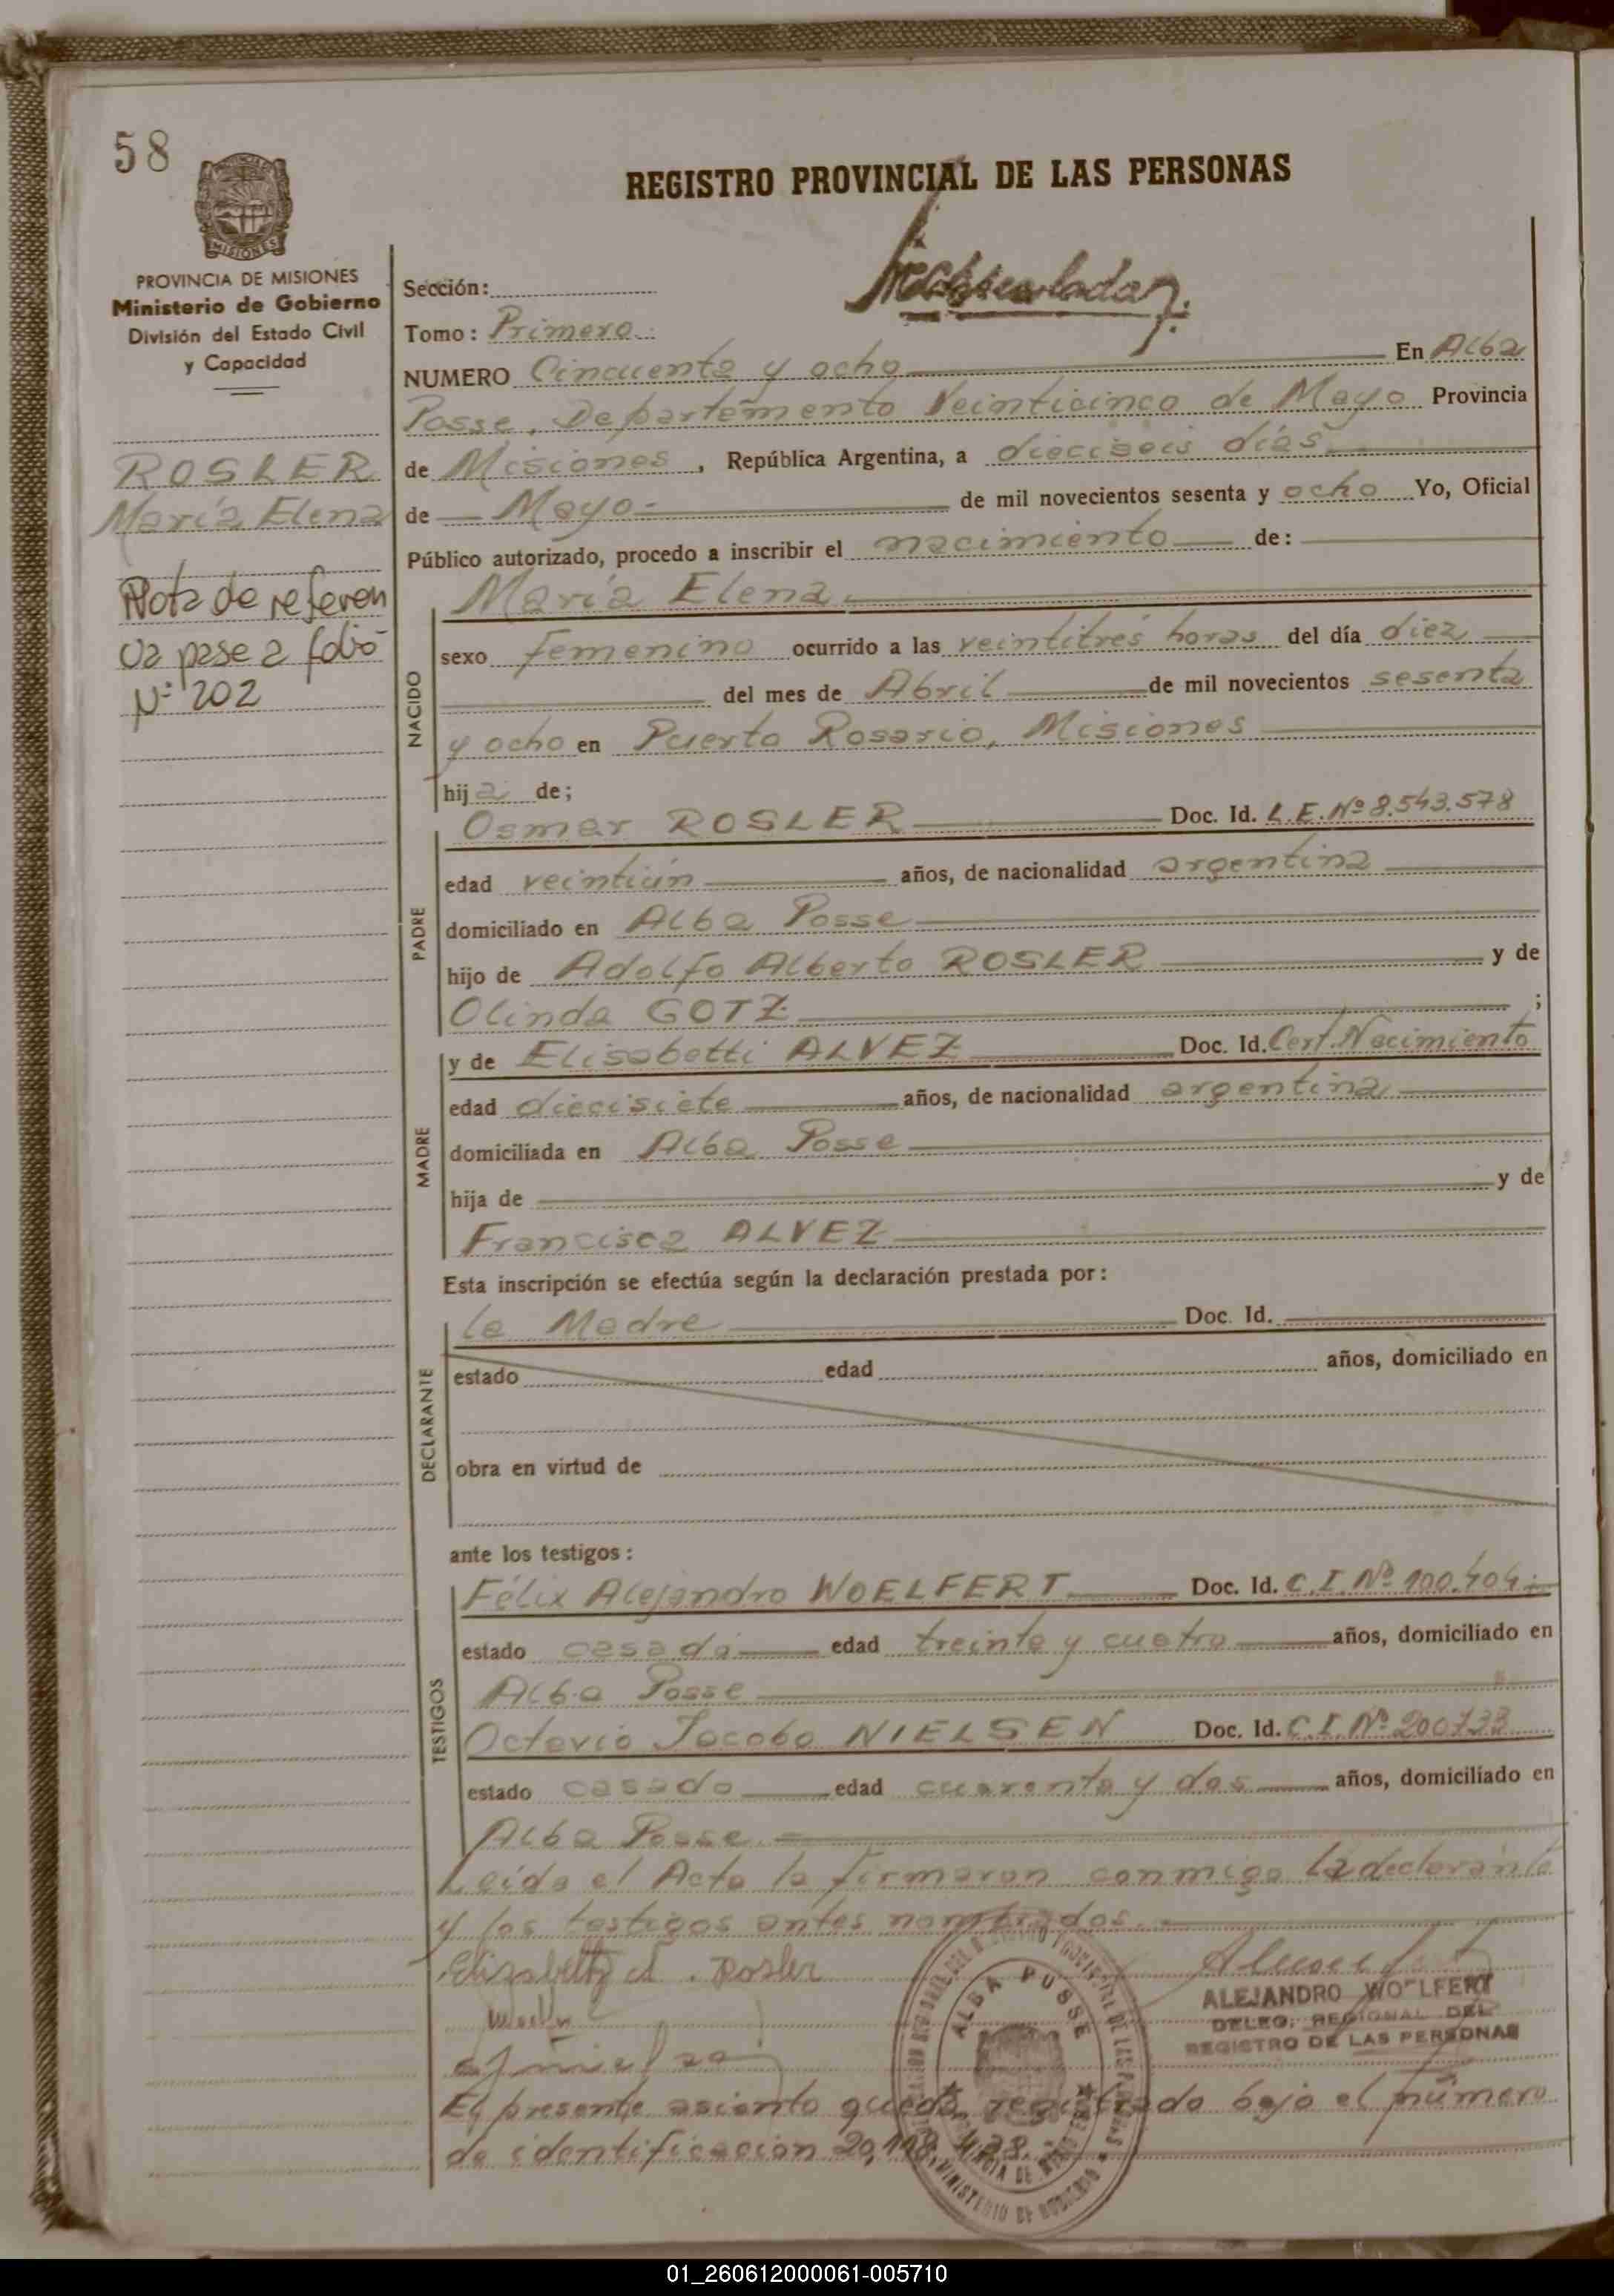 58
PROVINCIA DE MISIONES
Ministerio de Gobierno
División del Estado Civil
y Capacidad
ROSLER
María Elena
Nota de referen
cia pase a folio
Nº 202
REGISTRO PROVINCIAL DE LAS PERSONAS
Sección:
Tomo: Primero
NUMERO Cincuenta y ocho En Alba
Posse, Departamento Veinticinco de Mayo Provincia
de Misiones, República Argentina, a dieciseis días
de Mayo de mil novecientos sesenta y ocho Yo, Oficial
Público autorizado, procedo a inscribir el nacimiento de:
María Elena
NACIDO
sexo femenino ocurrido a las veintitrés horas del día diez
del mes de Abril de mil novecientos sesenta
y ocho en Puerto Rosario, Misiones
hija de;
PADRE
Osmar ROSLER Doc. Id. L.E.Nº 8.543.578
edad veintiún años, de nacionalidad argentina
domiciliado en Alba Posse
hijo de Adolfo Alberto ROSLER y de
Olinda GOTZ ;
MADRE
y de Elisabetti ALVEZ Doc. Id. Cert. Nacimiento
edad diecisiete años, de nacionalidad argentina
domiciliada en Alba Posse
hija de y de
Francisca ALVEZ
Esta inscripción se efectúa según la declaración prestada por:
DECLARANTE
la Madre Doc. Id.
estado edad años, domiciliado en
obra en virtud de
ante los testigos:
TESTIGOS
Félix Alejandro WOELFERT Doc. Id. C.I.Nº 100.404
estado casado edad treinta y cuatro años, domiciliado en
Alba Posse
Octavio Jacobo NIELSEN Doc. Id. C.I.Nº 200733
estado casado edad cuarenta y dos años, domiciliado en
Alba Posse
Leída el Acta la firmaron conmigo la declarante
y los testigos antes nombrados.
Elizabetty A. Rosler
ALBA POSSE
ALEJANDRO WOELFERT
DELEG. REGIONAL DEL
REGISTRO DE LAS PERSONAS
El presente asiento queda registrado bajo el número
de identificación
01_260612000061-005710